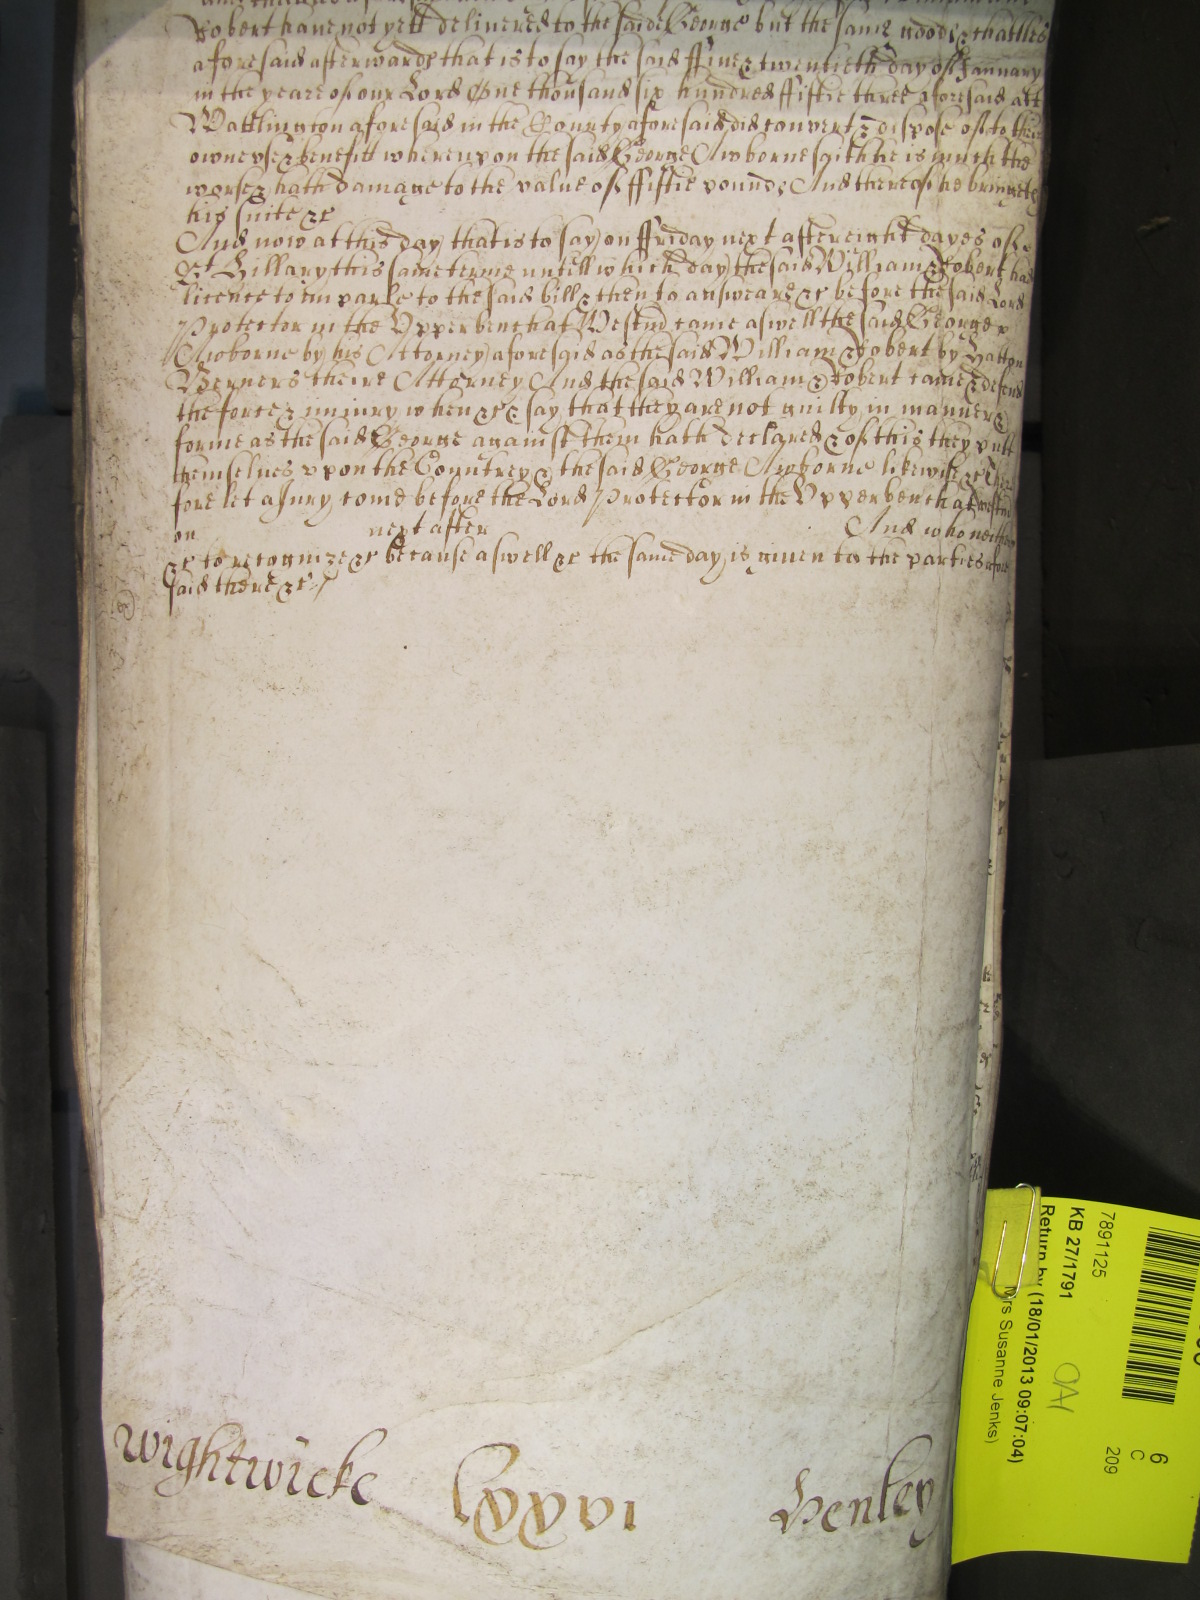 Robert have not yett delivered to the saide George but the same goods & chattles
aforesaid afterwards that is to say the said ffive & twentieth day of January
in the yeare of our Lord One thousand six hundred ffiftie three aforesaid att
Wattlington aforesaid in the County aforesaid did convert & dispose of to their
owne use & benefitt whereupon the said George Awborne saith he is much the
worse & hath damage to the value of ffiftie pounds And thereof he bringeth
his suite &c
And now at this day that is to say on ffriday next after eight dayes of
St Hillary this same terme untill which day the said William & Robert had
licence to imparle to the said bill & then to answeare &c before the said Lord
Protector in the Upper bench at Westmr came aswell the said George
Awborne by his Attorney aforesaid as the said William & Robert by Hatton
Berners theire Attorney And the said William & Robert came & defend
the force & iniury when &c & say that they are not guilty in manner &
forme as the said George against them hath declared & of this they putt
themselves uppon the Countrey & the said George Awborne likewise &c There
fore let a Jury come before the Lord Protector in the Upper bench at Westmr
on next after And who neither
&c to recognize &c because aswell &c the same day is given to the parties afore
said there &c
Wightwicke lxxvi Henley
7891125
KB 27/1791
Return by (18/01/2013 09:07:04)
Mrs Susanne Jenks)
OA1
6
C
209